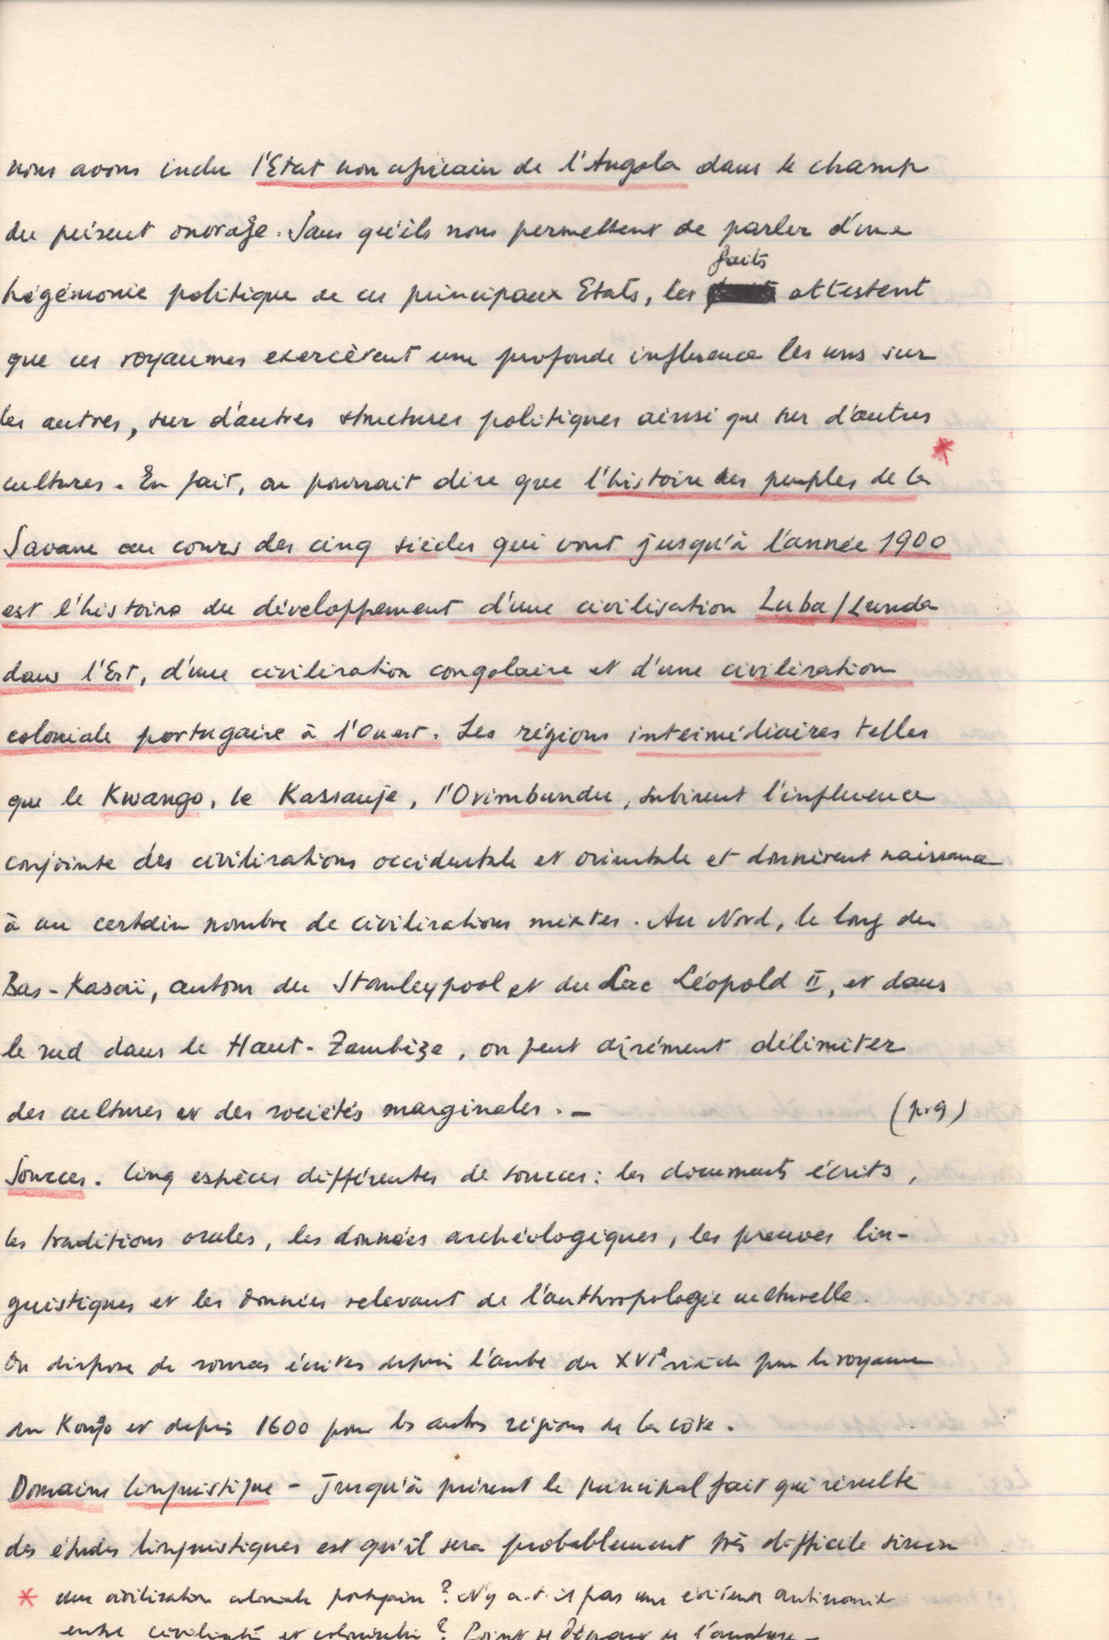 nous avons inclu l'Etat non africain de l'Angola dans le champ
du présent ouvrage. Sans qu'ils nous permettent de parler d'une
faits
hégémonie politique de ces principaux Etats, les attestent
que ces royaumes exercèrent une profonde influence les uns sur
les autres, sur d'autres structures politiques ainsi que sur d'autres
cultures. En fait, on pourrait dire que l'histoire des peuples de la *
Savane au cours des cinq siècles qui vont jusqu'à l'année 1900
est l'histoire du développement d'une civilisation Luba/Lunda
dans l'Est, d'une civilisation congolaise et d'une civilisation
coloniale portugaise à l'Ouest. Les régions intermédiaires telles
que le Kwango, le Kassanje, l'Ovimbundu, subirent l'influence
conjointe des civilisations occidentale et orientale et donnèrent naissance
à un certain nombre de civilisations mixtes. Au Nord, le long du
Bas-Kasaï, autour du Stanleypool et du Lac Léopold II, et dans
le sud dans le Haut-Zambèze, on peut aisément délimiter
des cultures et des sociétés marginales. - (p.9)
Sources. Cinq espèces différentes de sources : les documents écrits,
les traditions orales, les données archéologiques, les preuves lin-
guistiques et les données relevant de l'anthropologie culturelle.
On dispose de sources écrites depuis l'aube du XVIe siècle pour le royaume
du Kongo et depuis 1600 pour les autres régions de la côte.
Domaine linguistique - Jusqu'à présent le principal fait qui résulte
des études linguistiques est qu'il sera probablement très difficile sinon
* une civilisation coloniale portugaise ? N'y a-t-il pas une antinomie
entre civilisation et ? Point de de l'auteur -